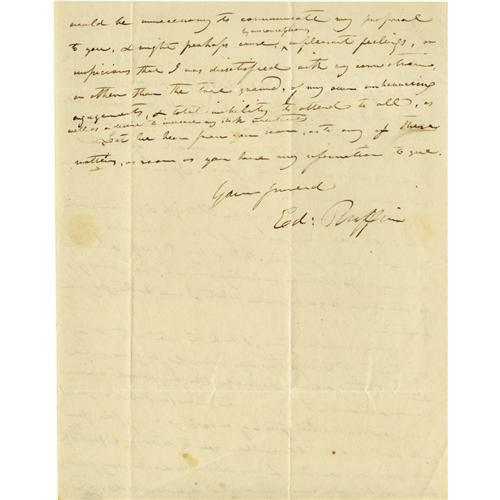 would be unnecessary to communicate my proposal
to you, & might perhaps cause, unpleasant feelings, or
suspicions that I was dissatisfied with my connections,
on other than the true ground, of my own increasing
engagements, & total inability to attend to all, as
well as a desire to
Let me hear from you soon, as to any of these
matters, as soon as you have any information to give.
Your friend
Ed: Ruffin